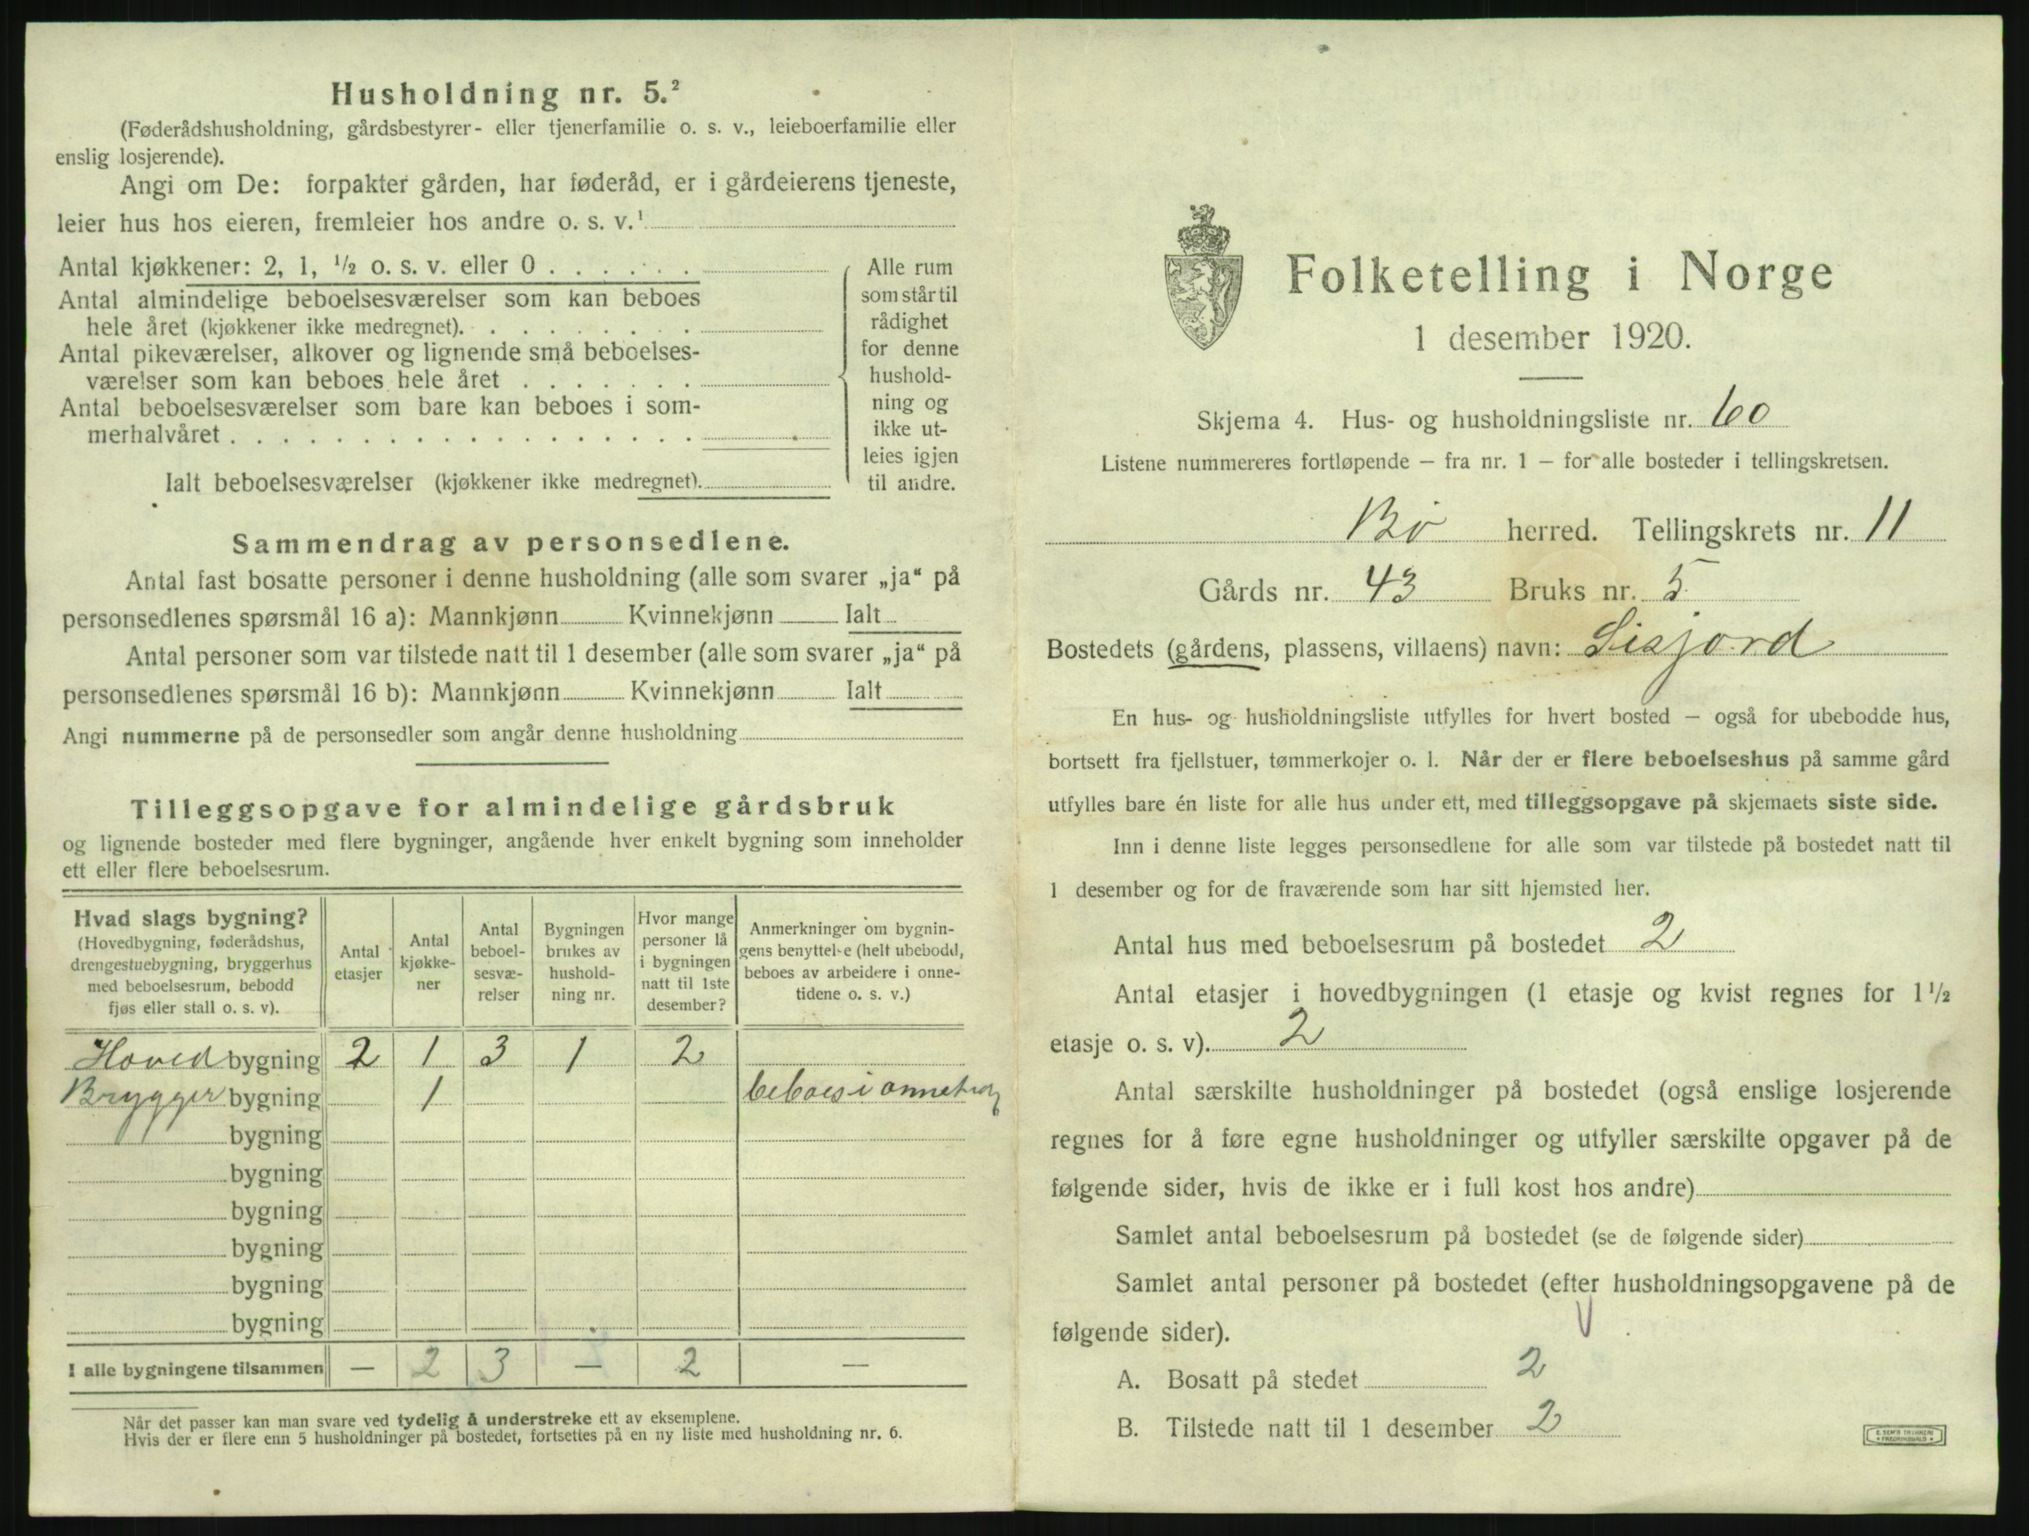 Husholdning nr. 5.²
(Føderådshusholdning, gårdsbestyrer- eller tjenerfamilie o. s. v., leieboerfamilie eller
enslig losjerende).
Angi om De: forpakter gården, har føderåd, er i gårdeierens tjeneste,
leier hus hos eieren, fremleier hos andre o. s. v.¹
Antal kjøkkener: 2, 1, ½ o. s. v. eller 0 . . . . . .
Antal almindelige beboelsesværelser som kan beboes
hele året (kjøkkener ikke medregnet). . . . . . . . .
Antal pikeværelser, alkover og lignende små beboelses-
værelser som kan beboes hele året . . . . . . .
Antal beboelsesværelser som bare kan beboes i som-
merhalvåret . . . . . . . . . . . . . . . . . .
Ialt beboelsesværelser (kjøkkener ikke medregnet).
Alle rum
som står til
rådighet
for denne
hushold-
ning og
ikke ut-
leies igjen
til andre.
Sammendrag av personsedlene.
Antal fast bosatte personer i denne husholdning (alle som svarer „ja“ på
personsedlenes spørsmål 16 a): Mannkjønn Kvinnekjønn Ialt
Antal personer som var tilstede natt til 1 desember (alle som svarer „ja“ på
personsedlenes spørsmål 16 b): Mannkjønn Kvinnekjønn Ialt
Angi nummerne på de personsedler som angår denne husholdning
Tilleggsopgave for almindelige gårdsbruk
og lignende bosteder med flere bygninger, angående hver enkelt bygning som inneholder
ett eller flere beboelsesrum.
Hvad slags bygning?
(Hovedbygning, føderådshus,
drengestuebygning, bryggerhus
med beboelsesrum, bebodd
fjøs eller stall o. s. v).
Antal
etasjer
Antal
kjøkke-
ner
Antal
beboel-
sesvæ-
relser
Bygningen
brukes av
hushold-
ning nr.
Hvor mange
personer lå
i bygningen
natt til 1ste
desember?
Anmerkninger om bygnin-
gens benyttelse (helt ubebodd,
beboes av arbeidere i onne-
tidene o. s. v.)
Hoved bygning 2 1 3 1 2
Brygger bygning 1 beboes i onnetid
bygning
bygning
bygning
bygning
bygning
bygning
I alle bygningene tilsammen — 2 3 — 2 —
Når det passer kan man svare ved tydelig å understreke ett av eksemplene.
Hvis der er flere enn 5 husholdninger på bostedet, fortsettes på en ny liste med husholdning nr. 6.
Folketelling i Norge
1 desember 1920.
Skjema 4. Hus- og husholdningsliste nr. 60
Listene nummereres fortløpende – fra nr. 1 – for alle bosteder i tellingskretsen.
Bø herred. Tellingskrets nr. 11
Gårds nr. 43 Bruks nr. 5
Bostedets (gårdens, plassens, villaens) navn: Lisjord
En hus- og husholdningsliste utfylles for hvert bosted – også for ubebodde hus,
bortsett fra fjellstuer, tømmerkojer o. l. Når der er flere beboelseshus på samme gård
utfylles bare én liste for alle hus under ett, med tilleggsopgave på skjemaets siste side.
Inn i denne liste legges personsedlene for alle som var tilstede på bostedet natt til
1 desember og for de fraværende som har sitt hjemsted her.
Antal hus med beboelsesrum på bostedet 2
Antal etasjer i hovedbygningen (1 etasje og kvist regnes for 1½
etasje o. s. v). 2
Antal særskilte husholdninger på bostedet (også enslige losjerende
regnes for å føre egne husholdninger og utfyller særskilte opgaver på de
følgende sider, hvis de ikke er i full kost hos andre)
Samlet antal beboelsesrum på bostedet (se de følgende sider)
Samlet antal personer på bostedet (efter husholdningsopgavene på de
følgende sider).
A. Bosatt på stedet 2
B. Tilstede natt til 1 desember 2